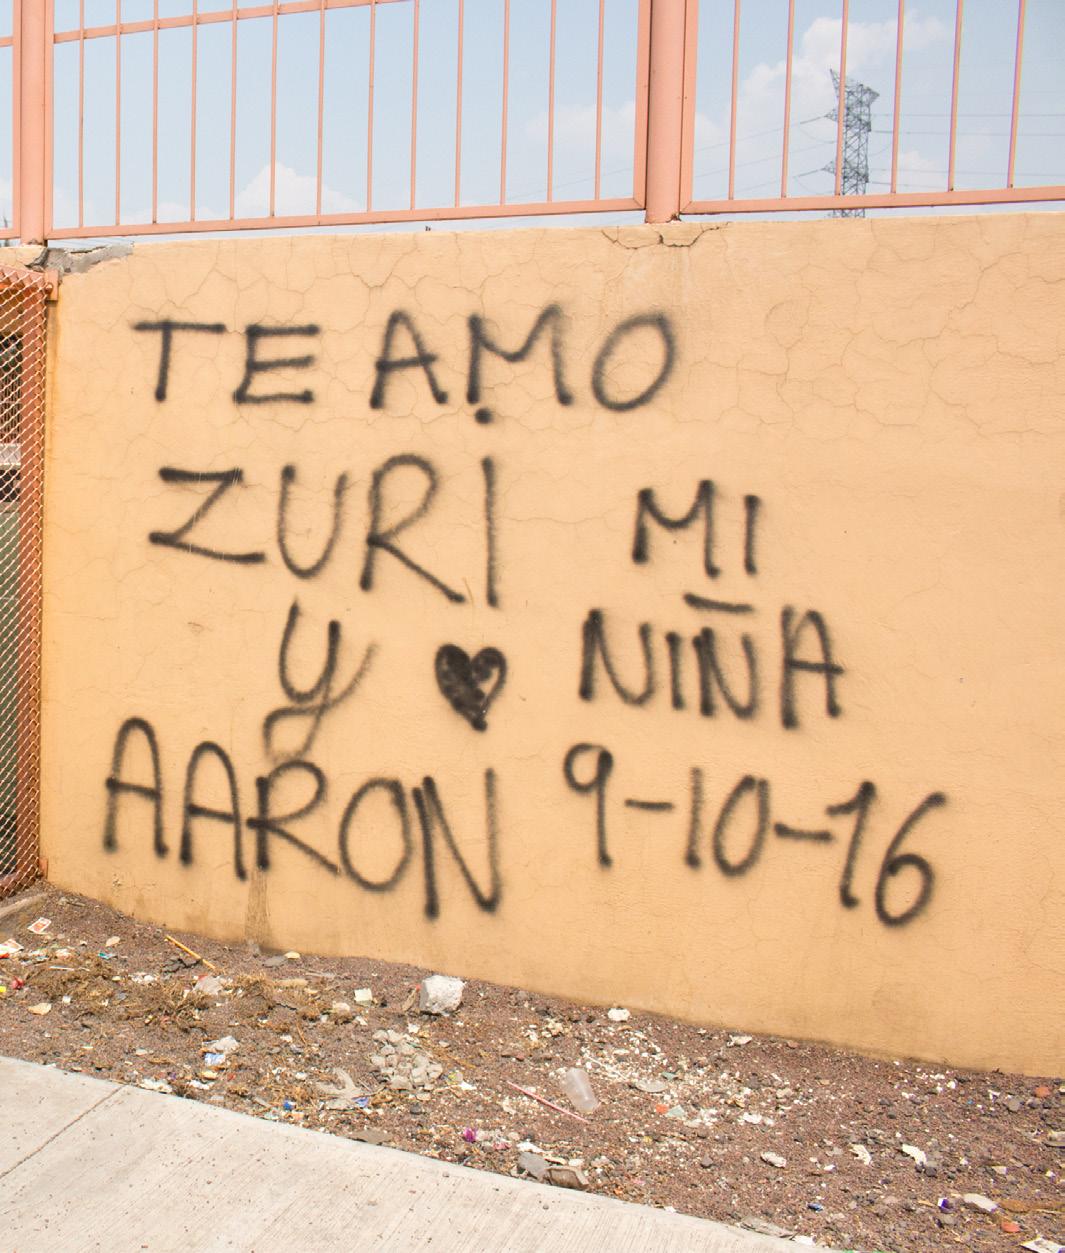 TE AMO
ZURI
y
AARON
MI
NIÑA
9-10-16